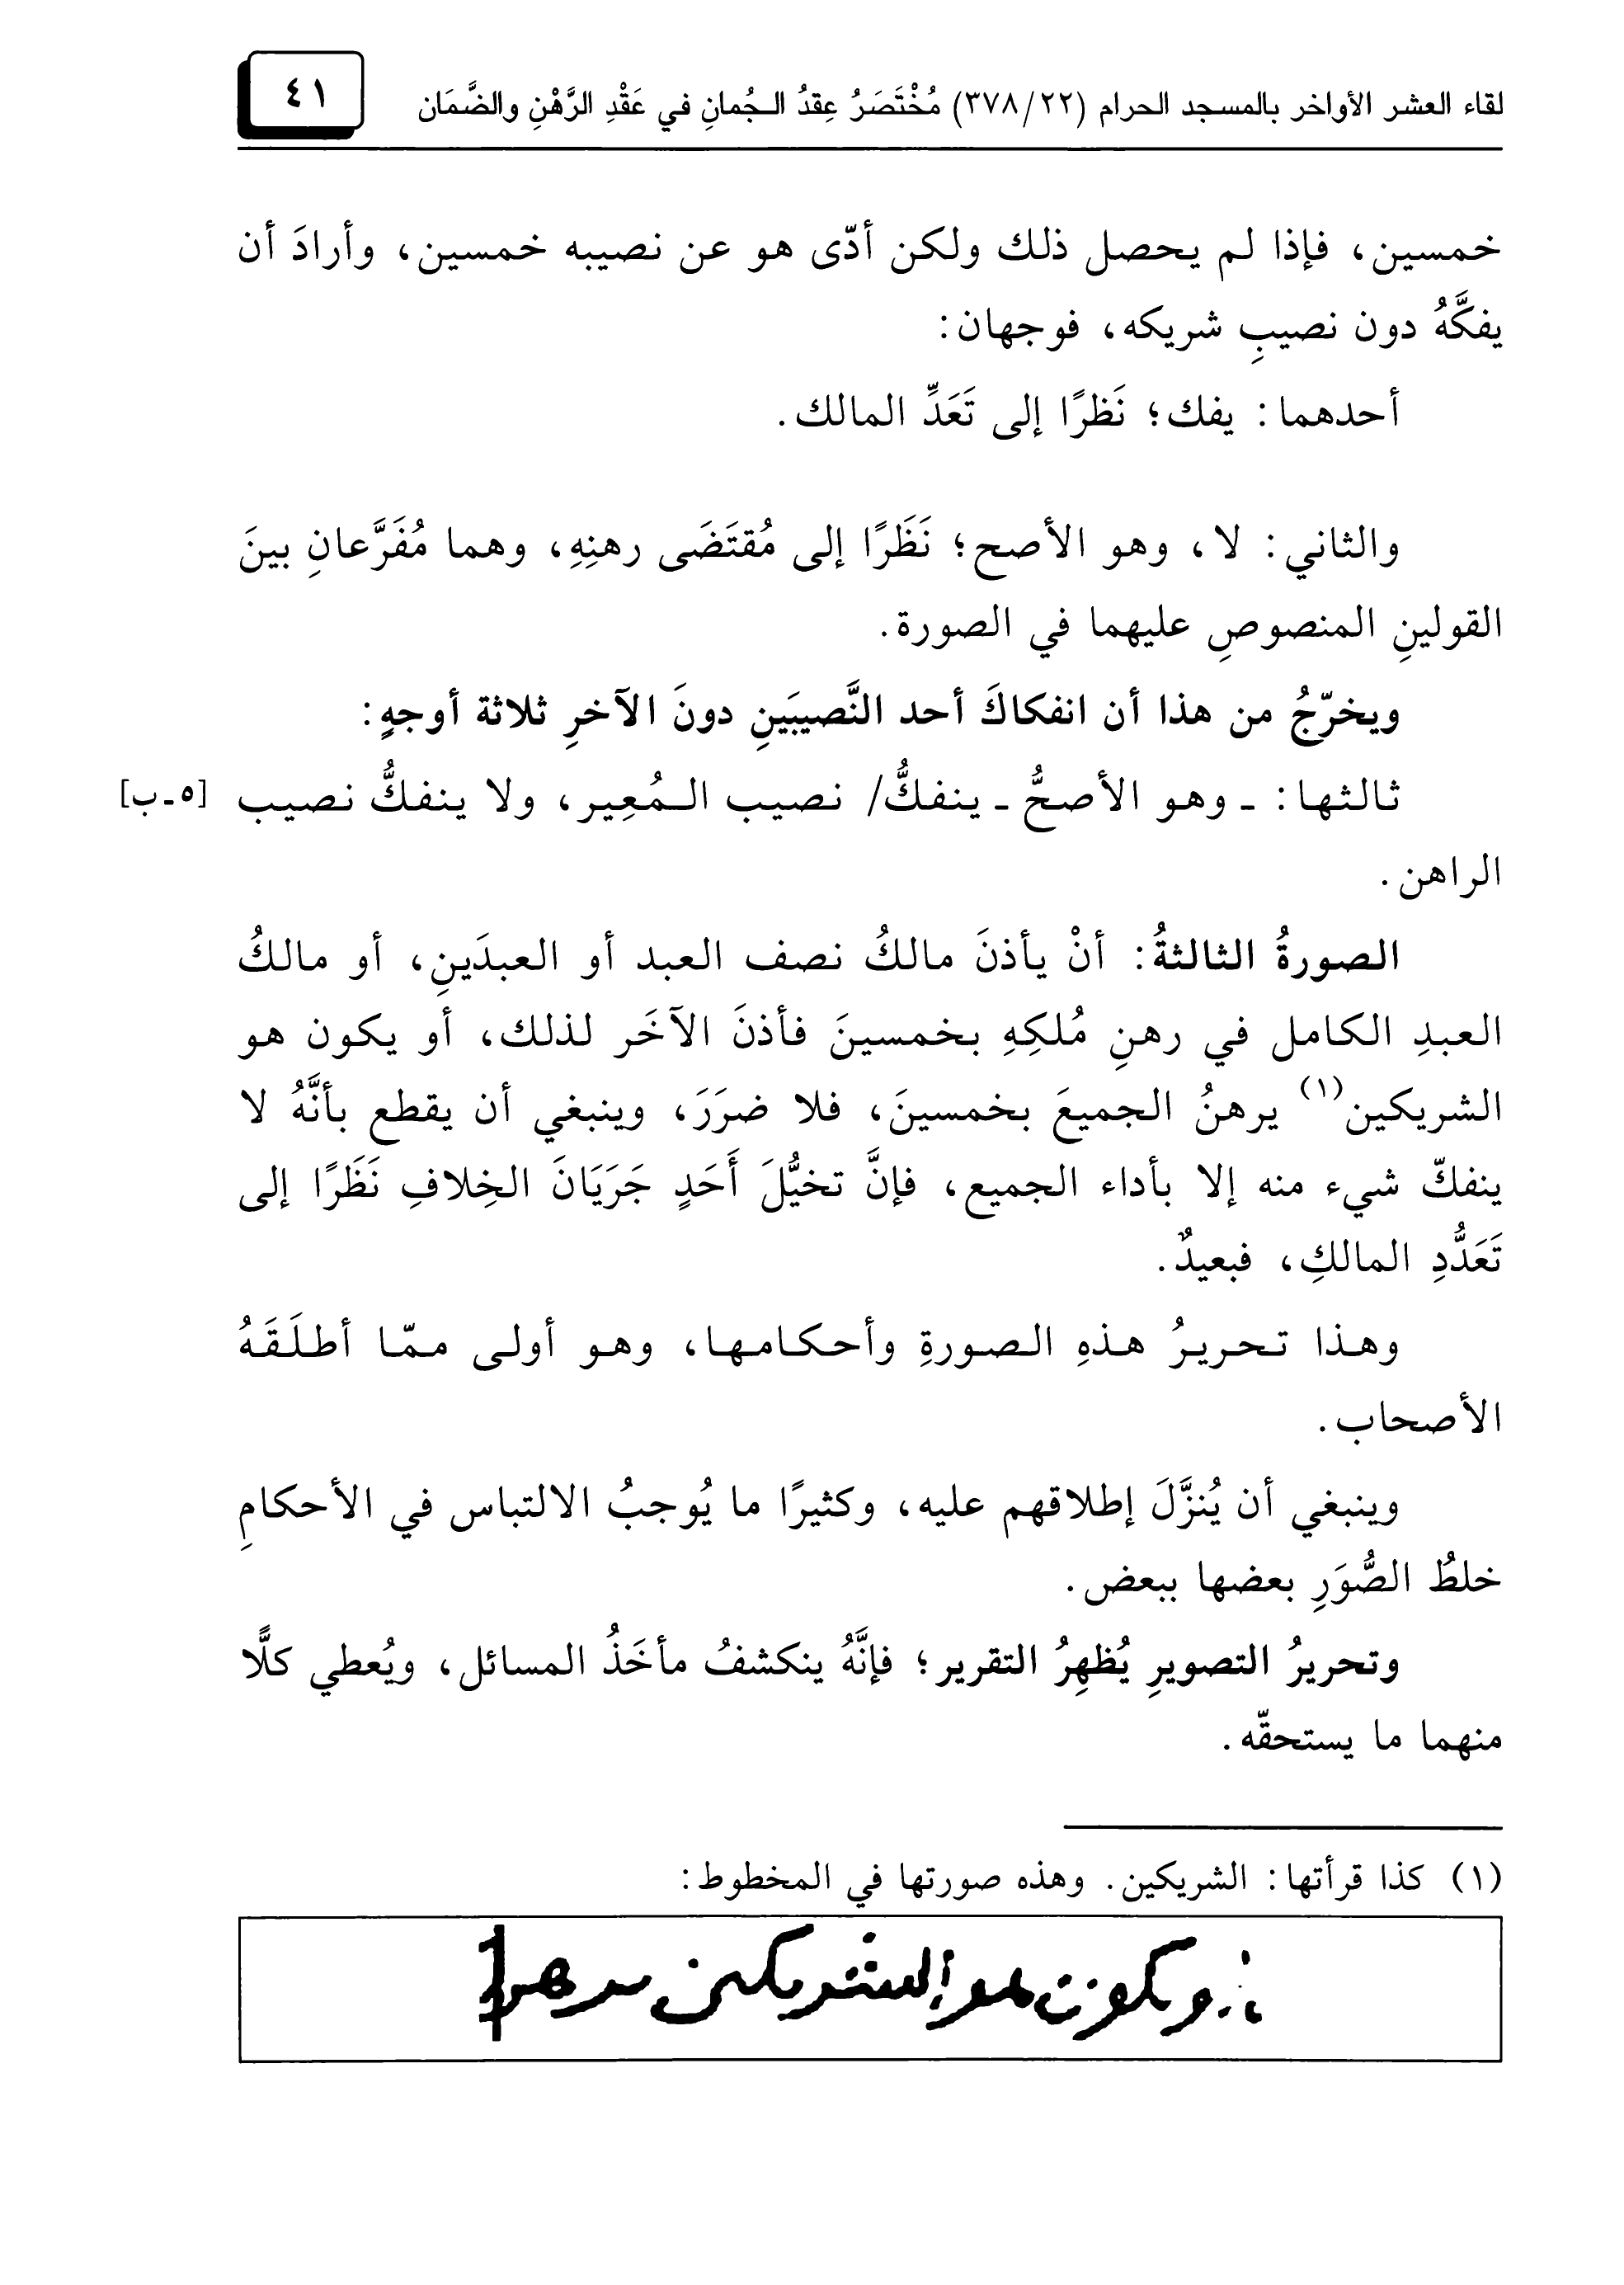 لقاء العشر الأواخر بالمسجد الحرام (٣٧٨/٢٢) مُخْتَصَرُ عِقدُ الـجُمانِ في عَقْدِ الرَّهْنِ والضَّمَان
٤١
خمسين، فإذا لم يحصل ذلك ولكن أدّى هو عن نصيبه خمسين، وأرادَ أن
يفكَّهُ دون نصيبِ شريكه، فوجهان:
أحدهما: يفك؛ نَظرًا إلى تَعَدِّ المالك.
والثاني: لا، وهو الأصح؛ نَظَرًا إلى مُقتَضَى رهنِهِ، وهما مُفَرَّعانِ بينَ
القولينِ المنصوصِ عليهما في الصورة.
ويخرّجُ من هذا أن انفكاكَ أحد النَّصيبَينِ دونَ الآخرِ ثلاثة أوجهٍ:
ثالثها: ـ وهو الأصحُّ ـ ينفكُّ/ نصيب الـمُعِير، ولا ينفكُّ نصيب [٥ـب]
الراهن.
الصورةُ الثالثةُ: أنْ يأذنَ مالكُ نصف العبد أو العبدَينِ، أو مالكُ
العبدِ الكامل في رهنِ مُلكِهِ بخمسينَ فأذنَ الآخَر لذلك، أو يكون هو
الشريكين(١) يرهنُ الجميعَ بخمسينَ، فلا ضرَرَ، وينبغي أن يقطع بأنَّهُ لا
ينفكّ شيء منه إلا بأداء الجميع، فإنَّ تخيُّلَ أَحَدٍ جَرَيَانَ الخِلافِ نَظَرًا إلى
تَعَدُّدِ المالكِ، فبعيدٌ.
وهذا تحريرُ هذهِ الصورةِ وأحكامها، وهو أولى ممّا أطلَقَهُ
الأصحاب.
وينبغي أن يُنزَّلَ إطلاقهم عليه، وكثيرًا ما يُوجبُ الالتباس في الأحكامِ
خلطُ الصُّوَرِ بعضها ببعض.
وتحريرُ التصويرِ يُظهِرُ التقرير؛ فإنَّهُ ينكشفُ مأخَذُ المسائل، ويُعطي كلًّا
منهما ما يستحقّه.
(١) كذا قرأتها: الشريكين. وهذه صورتها في المخطوط:
ويكون هو الشريكين يرهن